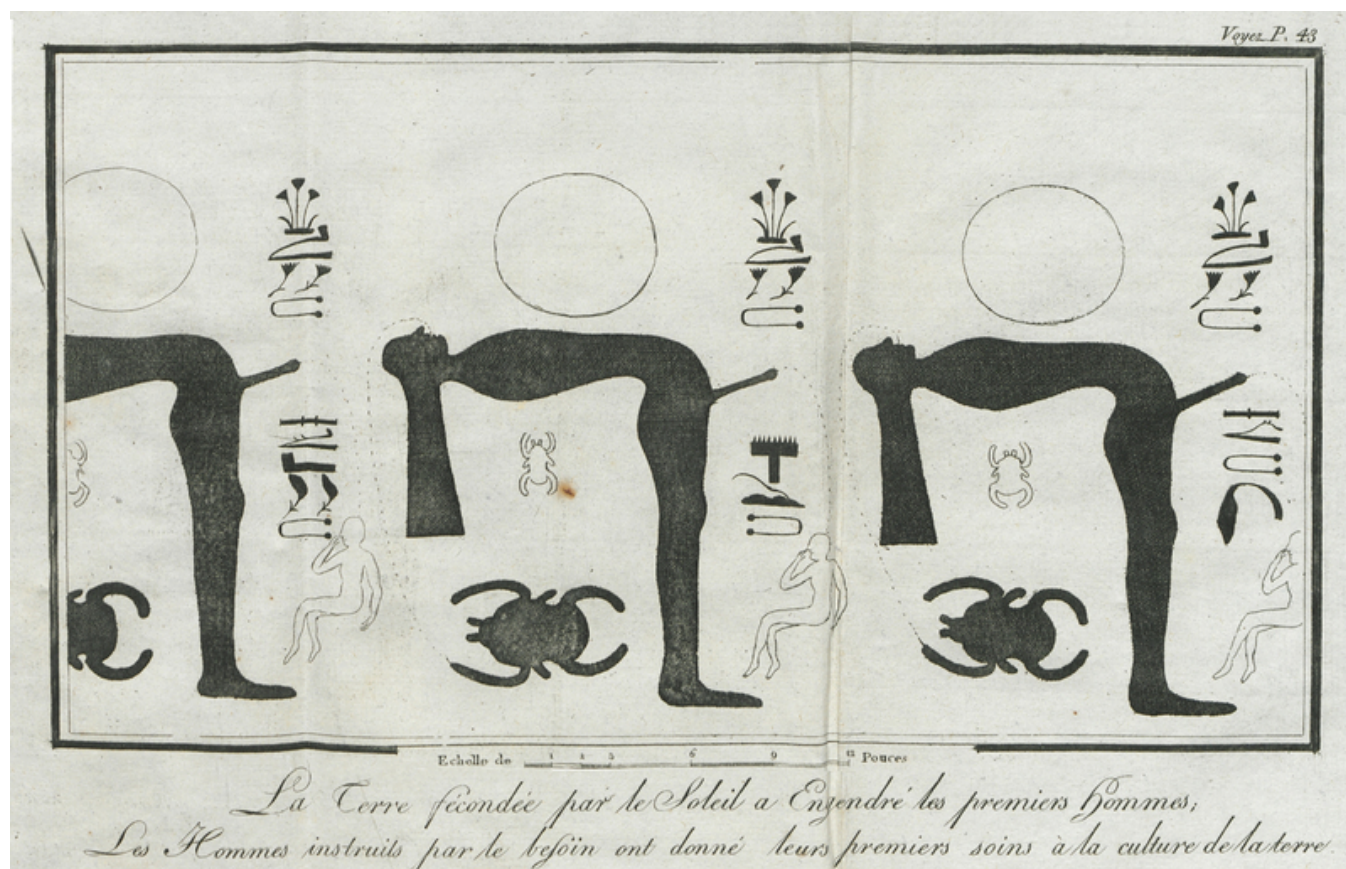 Voyez P. 43
Echelle de 1 2 3 6 9 12 Pouces
La Terre fécondée par le Soleil a Engendré les premiers Hommes;
Les Hommes instruits par le besoin ont donné leurs premiers soins à la culture de la terre.